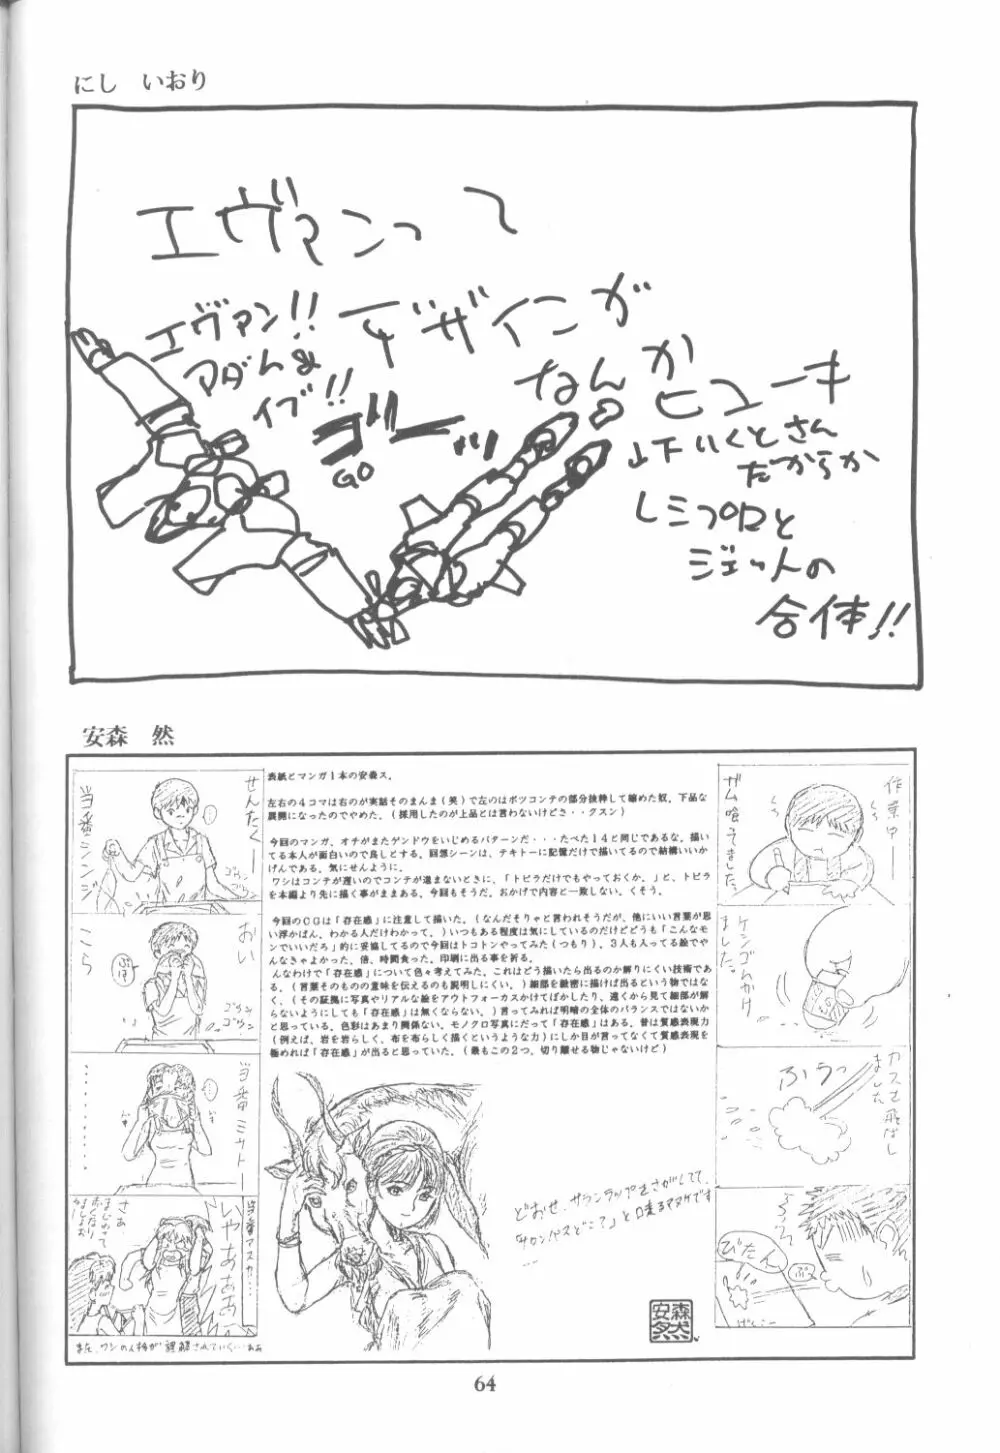 にし　いおり
エヴァンって
デザインが
なんか
ヒューキ
エヴァン!!
アダム&
イブ!!
ゴーッ
GO
山下いくとさん
だからか
レシプロと
ジェットの
合体!!
安森　然
表紙とマンガ1本の安養ス。
左右の4コマは右のが実話そのまんま(笑)で左のはボツコンテの部分抜粋して縮めた奴。下品な
展開になったのでやめた。(採用したのが上品とは言わないけどさ・・グスン)
今回のマンガ、オチがまたゲンドウをいじめるパターンだ・・・たべた14と同じであるな。描い
てる本人が面白いので良しとする。回想シーンは、テキトーに記憶だけで描いてるので結構いいか
げんである。気にせんように。
ワシはコンテが遅いのでコンテが進まないときに、「トビラだけでもやっておくか。」と、トビラ
を本編より先に描く事がままある。今回もそうだ。おかげで内容と一致しない。くそう。
今回のCGは「存在感」に注意して描いた。(なんだそりゃと言われそうだが、他にいい言葉が思
い浮かばん、わかる人だけわかって。)いつもある程度は気にしているのだけどどうも「こんなモ
ンでいいだろ」的に妥協してるので今回はトコトンやってみた(つもり)、3人も入ってる絵でや
んなきゃよかった。倍、時間食った。印刷に出る事を祈る。
んなわけで「存在感」について色々考えてみた。これはどう描いたら出るのか解りにくい技術であ
る。(言葉そのものの意味を伝えるのも説明しにくい。)細部を緻密に描けば出るという物ではな
く、(その証拠に写真やリアルな絵をアウトフォーカスかけてぼかしたり、遠くから見て細部が解
らないようにしても「存在感」は無くならない。)言ってみれば明暗の全体のバランスではないか
と思っている。色彩はあまり関係ない。モノクロ写真にだって「存在感」はある。昔は質感表現力
(例えば、岩を岩らしく、布を布らしく描くというような力)にしか目が言ってなくて質感表現を
極めれば「存在感」が出ると思っていた。(最もこの2つ、切り離せる物じゃないけど)
作業中――
ガム喰ってました。
ケシゴムかけ
ました。
カスを飛ばし
ました
ふうっ
ぷっ
ぴたん
げんこー
せんたくー
当番シンジ
ゴウン
おい
こら
ゴウン
ゴウン
当番ミサトー
当番アスカ…
いやあああ
さあ、
また、ワシの人格が誤解されていく…ああ
どおせ、サランラップをさがしてて、
「サロンパスどこ?」と口走るアタマです
安森
然
64